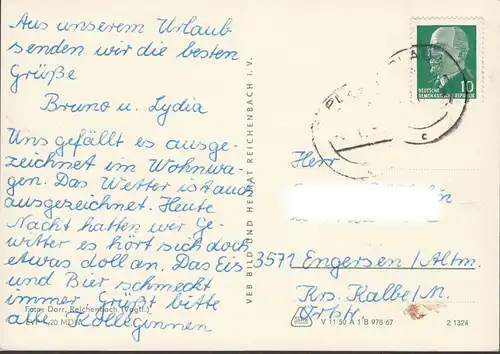 Aus unserem Urlaub
senden wir die besten
Grüße
Bruno u. Lydia
Uns gefällt es ausge-
zeichnet im Wohnwa-
gen. Das Wetter ist auch
ausgezeichnet. Heute
Nacht hatten wir Ge-
witter es hört sich doch
etwas doll an. Das Eis
und Bier schmeckt
immer Grüßt bitte
alle Kolleginnen
Foto: Darr, Reichenbach (Vogtl.)
VEB BILD UND HEIMAT REICHENBACH I. V.
DEUTSCHE
DEMOKRATISCHE REPUBLIK
10
Herr
3571 Engersen/Altm.
Krs. Kalbe/M.
Ortstr.
V 11 50 A 1 B 978 67
2 1324